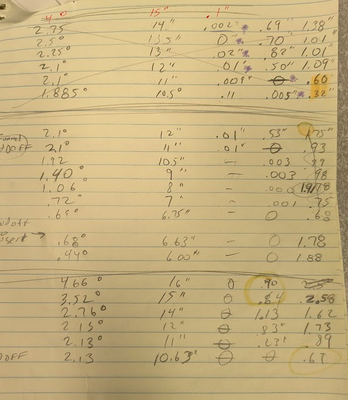 4.0° 15" .1"
2.75 14." .002" .69" 1.38"
2.5° 13.5" 0 .70 1.01
2.25° 13" .02" .82" 1.01
2.1° 12" .01" .50" 1.09
2.1° 11" .009" 0 .60
1.885° 10.5° .11 .005" .32"
2.1° 12" .01" .55" 1.75"
DOFF 2.1° 11" .01" 0 .93
1.92 10.5" - .003
1.40° 9" - .003 .98
1.06 8" -
.72° 7" - .001 .75
.65° 6.75" - 0 .68
.68° 6.63" - 0 1.78
.44° 6.00" - 0 1.88
4.66° 16" 0 .90
3.52° 15" 0 .84 2.58
2.76° 14" 0 1.13 1.62
2.15° 12" 0 .83" 1.73
2.13° 11" 0 .23" .89
DOFF 2.13 10.63" 0 0 .63